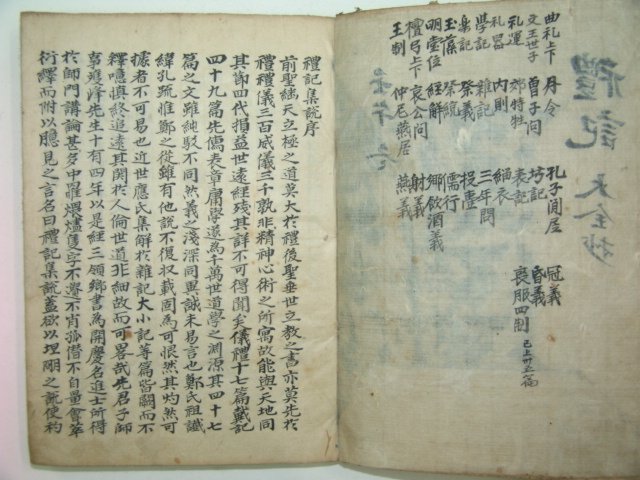 禮記 大全抄
曲礼上下 月令 孔子閒居 冠義
文王世子 曾子問 坊記 昏義
礼運 郊特牲 表記 喪服四制 已上卅五篇
礼器 内則 緇衣
學記 雜記 三年問
樂記 祭義 投壺
玉藻 祭統 儒行
明堂位 經解 鄉飲酒義
檀弓上下 哀公問 射義
王制 仲尼燕居 燕義
禮記集說序
前聖繼天立極之道莫大於禮後聖垂世立教之書亦莫先於
禮禮儀三百威儀三千孰非精神心術之所寓故能與天地同
其節四代損益世遠經殘其詳不可得聞矣儀禮十七篇戴記
四十九篇先儒表章庸學遂為千萬世道學之淵源其四十七
篇之文雖純駁不同然義之淺深同異誠未易言也鄭氏祖讖
緯孔疏惟鄭之從雖有他說不復収載固為可恨然其灼然可
據者不可易也近世應氏集解於雜記大小記等篇皆闕而不
釋噫慎終追遠其関於人倫世道非細故而可畧哉先君子師
事雙峰先生十有四年以是經三領鄉書為開慶名進士所得
於師門講論甚多中罹煨燼隻字不遺不肖孤僭不自量會萃
衍繹而附以臆見之言名曰禮記集說蓋欲以坦明之說使初